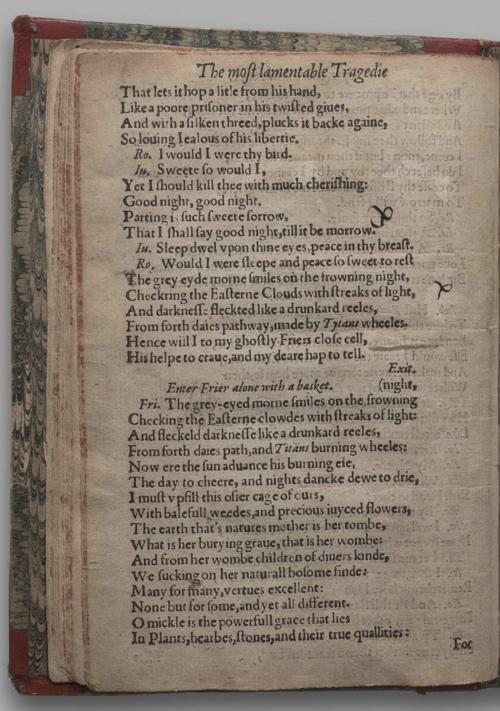 The most lamentable Tragedie
That lets it hop a litle from his hand,
Like a poore prisoner in his twisted giues,
And with a silken threed, plucks it backe againe,
So louing Iealous of his libertie.
Ro. I would I were thy bird.
Iu. Sweete so would I,
Yet I should kill thee with much cherishing:
Good night, good night.
Parting is such sweete sorrow,
That I shall say good night, till it be morrow.
Iu. Sleep dwel vpon thine eyes, peace in thy breast.
Ro. Would I were sleepe and peace so sweet to rest
The grey eyde morne smiles on the frowning night,
Checkring the Easterne Clouds with streaks of light,
And darknesse fleckted like a drunkard reeles,
From forth daies pathway, made by Tytans wheeles.
Hence will I to my ghostly Friers close cell,
His helpe to craue, and my deare hap to tell.
Exit.
Enter Frier alone with a basket. (night,
Fri. The grey-eyed morne smiles on the frowning
Checking the Easterne clowdes with streaks of light:
And fleckeld darknesse like a drunkard reeles,
From forth daies path, and Titans burning wheeles:
Now ere the sun aduance his burning eie,
The day to cheere, and nights dancke dewe to drie,
I must vpfill this osier cage of ours,
With balefull weedes, and precious iuyced flowers,
The earth that's natures mother is her tombe,
What is her burying graue, that is her wombe:
And from her wombe children of diuers kinde,
We sucking on her naturall bosome finde:
Many for many, vertues excellent:
None but for some, and yet all different.
O mickle is the powerfull grace that lies
In Plants, hearbes, stones, and their true quallities:
For